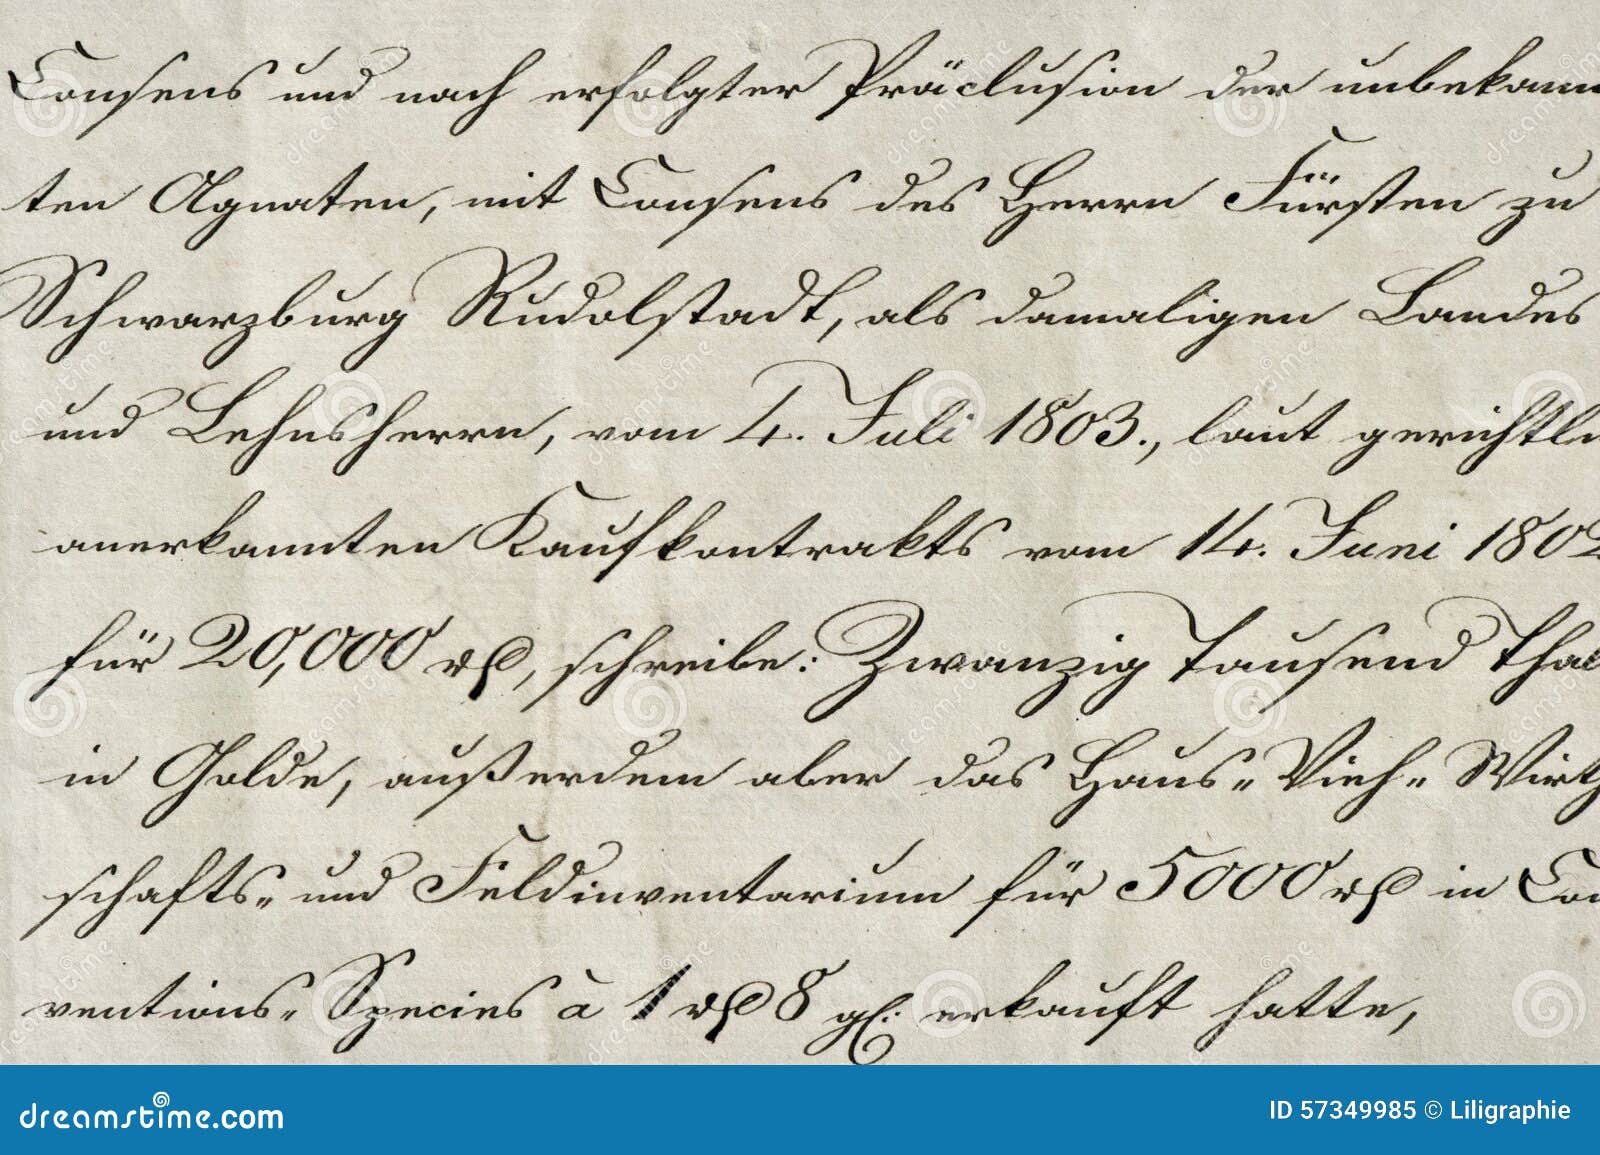 Consens und nach erfolgter Präclusion der unbekann
ten Agnaten, mit Consens des Herrn Fürsten zu
Schwarzburg Rudolstadt, als damaligen Landes
und Lehnsherrn, vom 4. Juli 1803., laut gerichtli
anerkannten Kaufkontrakts vom 14. Juni 1802
für 20,000 rß, schreibe: Zwanzig Tausend Tha
in Golde, außerdem aber das Haus= Vieh= Wirth
schafts= und Feldinventarium für 5000 rß in Con
ventions= Species à 1 rß 8 gl: erkauft hatte,
dreamstime.com
ID 57349985 © Liligraphie